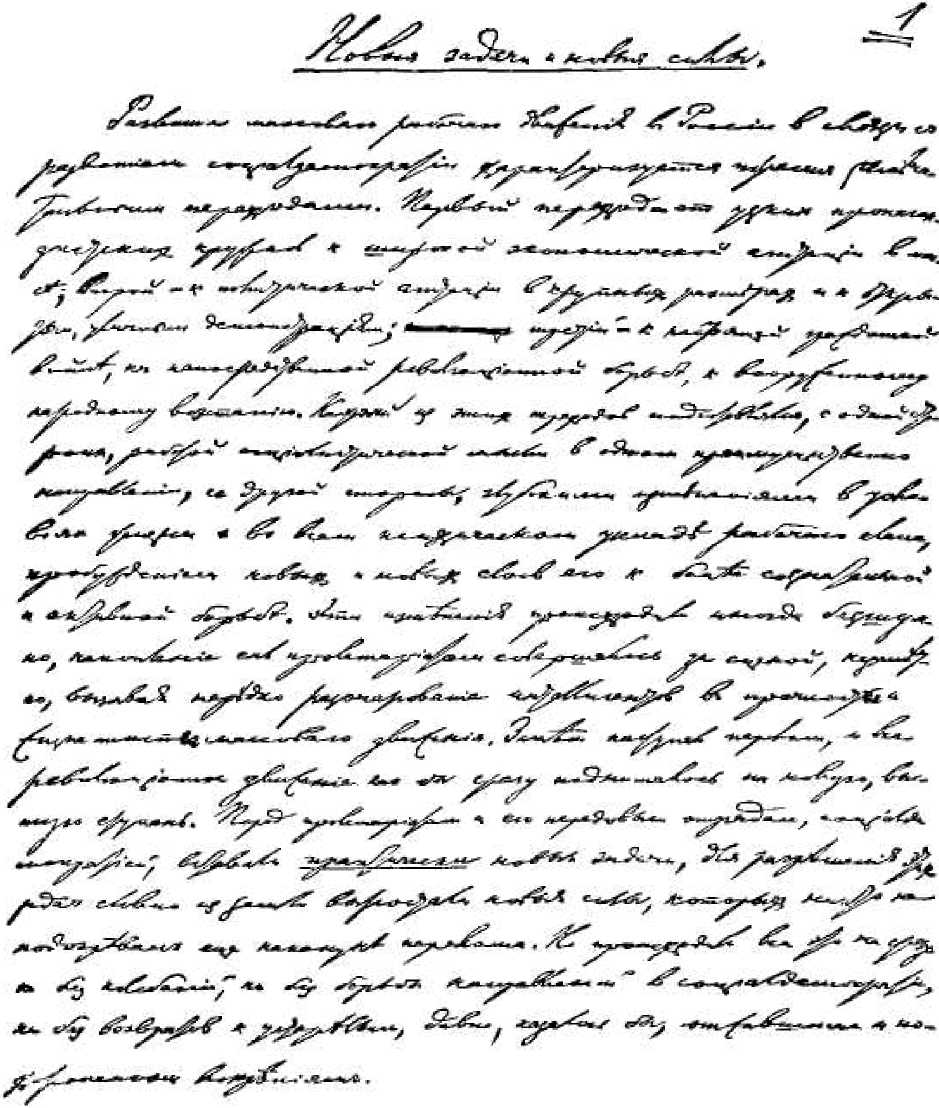 1
Новыя задачи и новыя силы.
Развитiе массоваго рабочаго движенiя в Россiи в связи со
развитiем социалдемократiи характеризуется тремя замѣча-
тельными переходами. Первый переход – от узких пропаган-
дистских кружков к широкой экономической агитацiи в мас-
сѣ; второй – к политической агитацiи в крупных размѣрах и к откры-
тым, уличным демонстрацiям; третiй – к настоящей гражданской
войнѣ, к непосредственной революцiонной борьбѣ, к вооруженному
народному возстанiю. Каждый из этих переходов подготовлялся, с одной сто-
роны, работой соцiалистической мысли в одном преимущественно
направленiи, с другой стороны, глубокими измѣненiями в усло-
виях жизни и во всем психическом укладѣ рабочаго класса,
пробужденiем новых и новых слоев его к болѣе сознательной
и активной борьбѣ. Эти измѣненiя происходили иногда безшум-
но, накопленiе сил пролетарiатом совершалось за сценой, незамѣт-
но, вызывая нерѣдко разочарованiе интеллигентов в прочности и
жизненности массоваго движенiя. Затѣм наступал перелом, и все
революцiонное движенiе как бы сразу поднималось на новую, выс-
шую ступень. Перед пролетарiатом и его передовым отрядом, соцiалде-
мократiей, вставали практически новыя задачи, для разрѣшенiя этих
задач словно из земли выростали новыя силы, которых никто не
подозрѣвал еще наканунѣ перелома. Но происходило все это не сразу,
не без колебанiй, не без борьбы направленiй в социалдемократiи,
не без возвратов к устарѣлым, давно, казалось бы, отжившим и по-
хороненным воззрѣнiям.